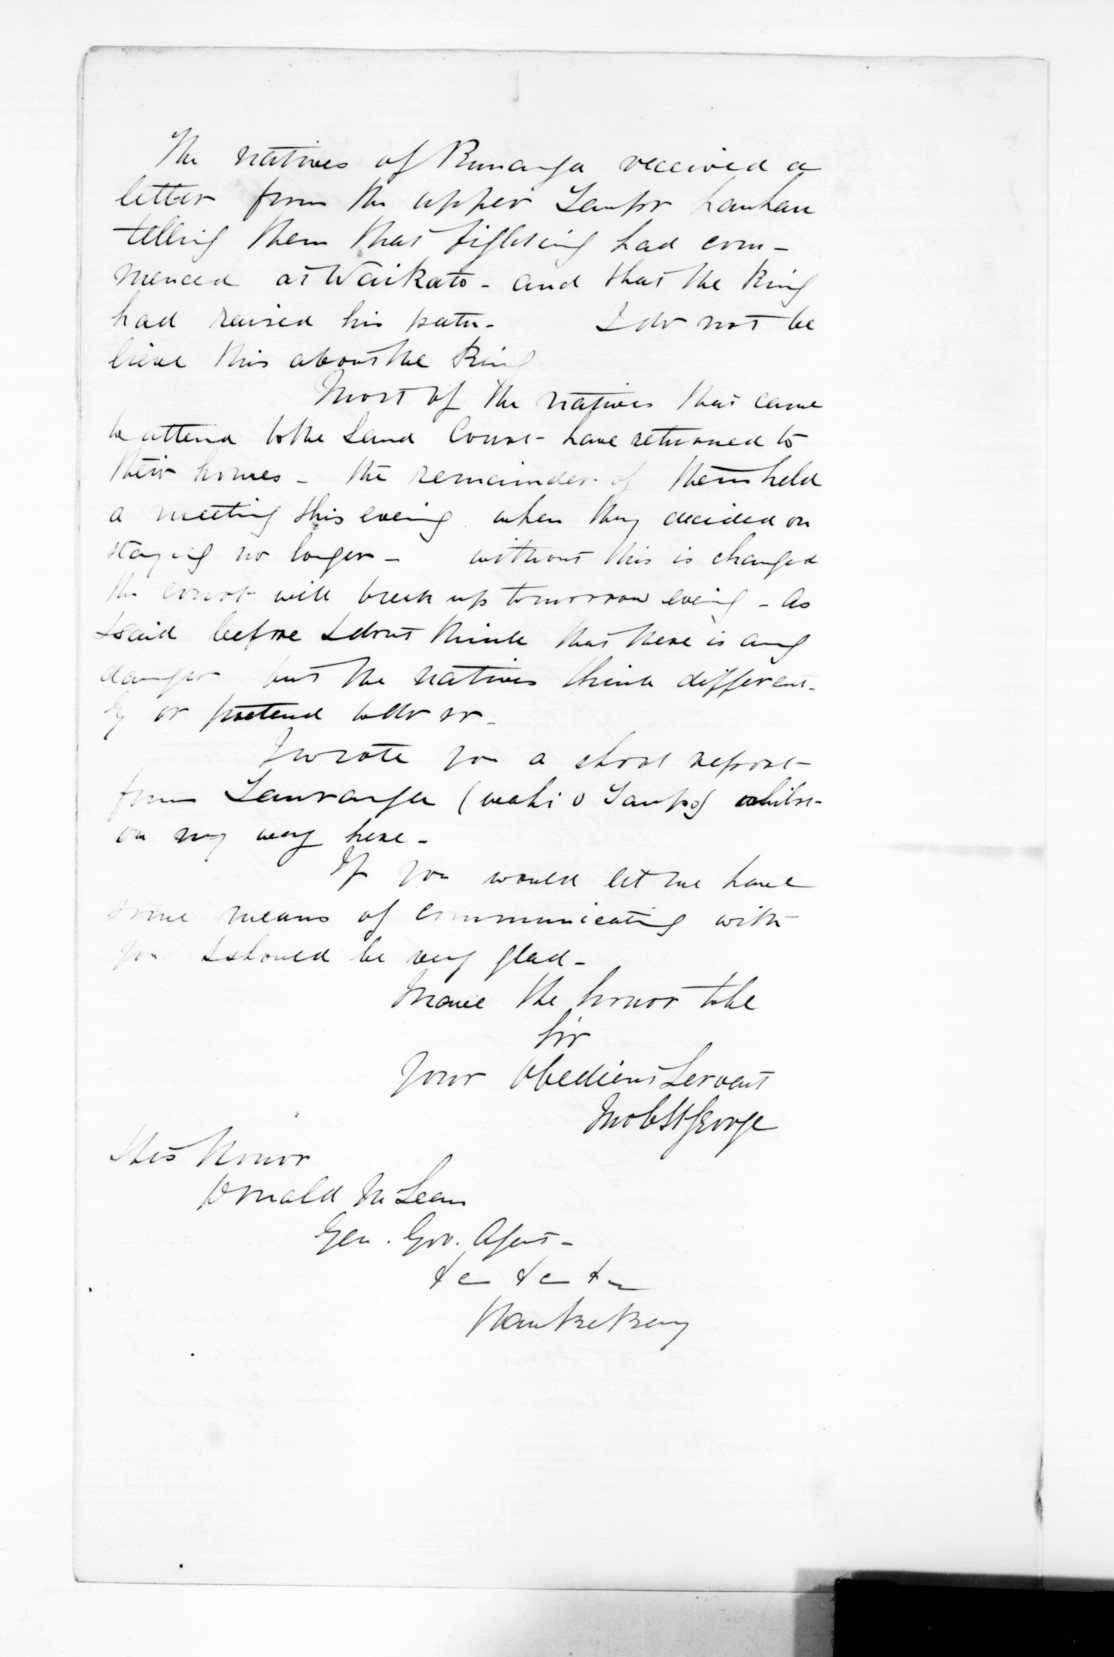 The natives of Runanga received a
letter from the upper Taupo hauhau
telling them that fighting had com-
menced at Waikato - and that the King
had raised his patu - I do not be
lieve this about the King
Most of the natives that came
to attend to the Land Court - have returned to
their homes - the remainder of them held
a meeting this evening when they decided on
staying no longer - without this is changed
the court will break up tomorrow evening - As
I said before I dont think that there is any
danger but the natives think different-
ly or pretend to do so -
I wrote you a short report
from Tauranga (waki o Taupo) whilst
on my way here -
If you would let me have
some means of communicating with
you I should be very glad -
I have the honor to be
Sir
Your Obedient Servant
Jno C St George
His Honor
Donald McLean
Gen. Gov. Agent -
&c &c &c
Hawke Bay